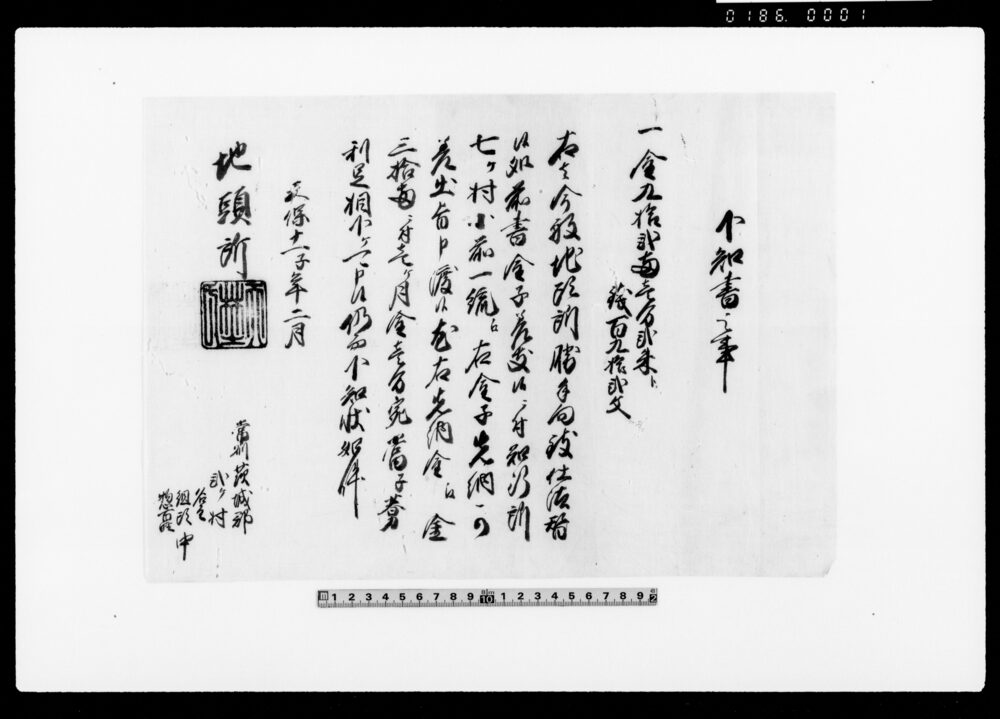 0186. 0001
下知書之事
一 金九拾弐両壱分弐朱ト
銭百九拾弐文
右者今般地頭所勝手向致仕法替
候処前書金子差支候ニ付知行所
七ヶ村小前一統江右金子先納可
差出旨申渡候尤右先納金江金
三拾両ニ付壱ヶ月金壱分宛当子暮
利足相下ヶ可申候仍而下知状如件
天保十一子年二月
地頭所
常州茨城郡
弐ヶ村
名主
組頭 中
惣百姓
1 2 3 4 5 6 7 8 9 10 1 2 3 4 5 6 7 8 9 2